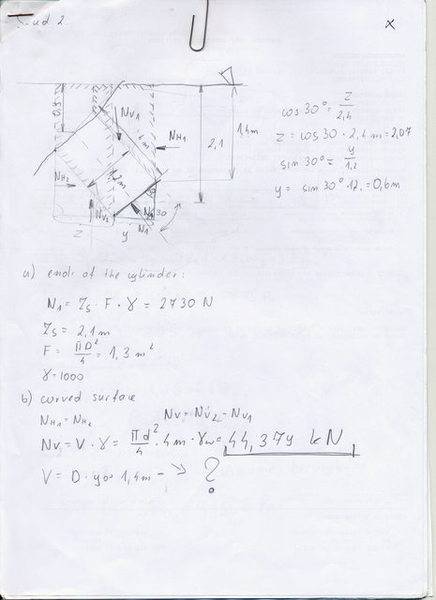 ud 2.
x
0,8
Nv1
NH1
2,1
1,4m
NH2
1,2m
Nv2
30
N1
z
y
cos 30° = z/2,4
z = cos 30 · 2,4 m = 2,07
sin 30° = y/1,2
y = sin 30° · 12. = 0,6m
a) ends of the cylinder:
N1 = Zs · F · γ = 2730 N
Zs = 2,1 m
F = ΠD²/4 = 1,3 m²
γ = 1000
b) curved surface
NH1 = NH2
Nv = Nv2 - Nv1
Nv = V · γ = Πd²/4 · 4m · γw = 44,374 kN
V = D · y · 1,4m - → ?